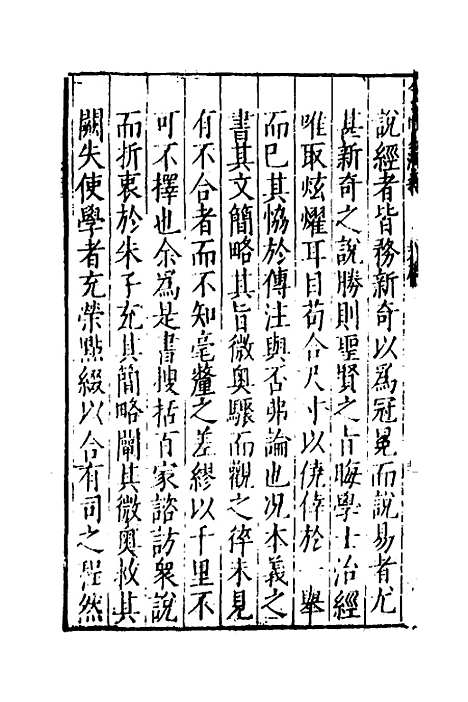 說經者皆務新奇以為冠冕而說易者尤
甚新奇之說勝則聖賢之旨晦學士治經
唯取炫燿耳目苟合尺寸以僥倖於一舉
而已其恊於傳注與否弗論也况本義之
書其文簡略其旨微奧驟而觀之猝未見
有不合者而不知毫釐之差繆以千里不
可不擇也余為是書搜括百家諮訪衆說
而折衷於朱子充其簡略闡其微奧救其
闕失使學者充榮點綴以合有司之程然